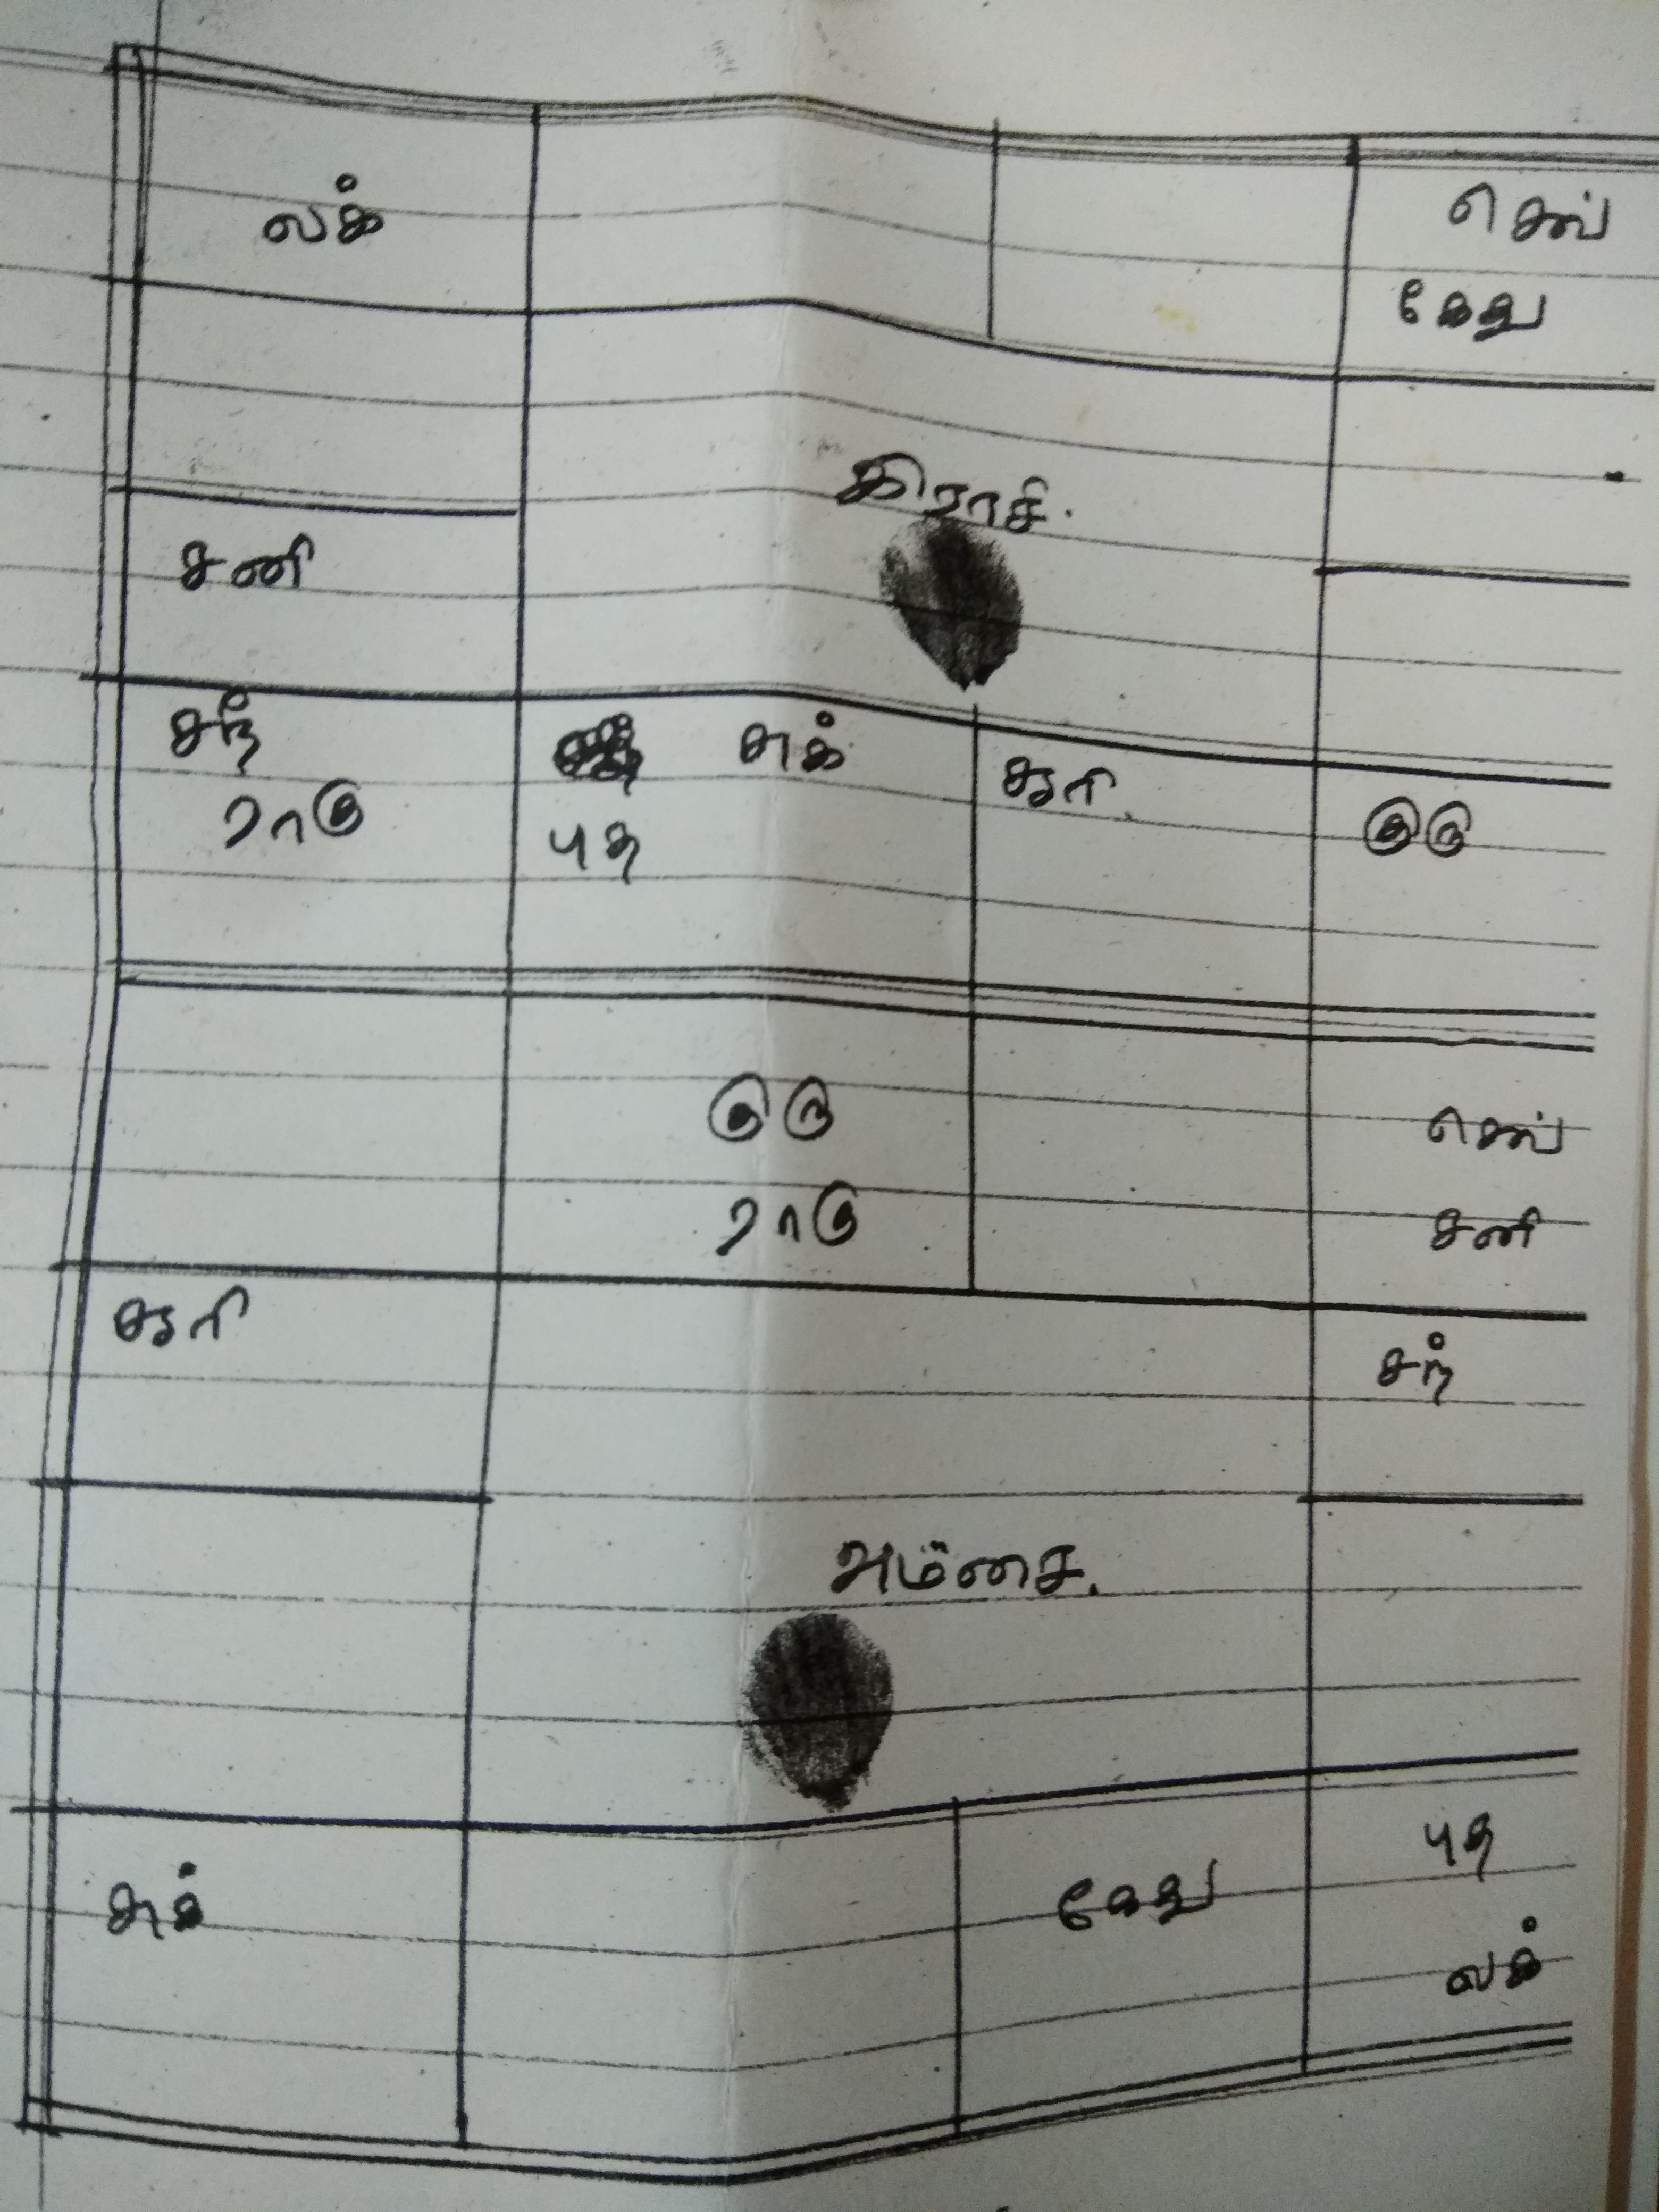 லக்
செவ்
கேது
இராசி.
சனி
சந்
ராகு
சுக்
புத
சூரி.
குரு
குரு
ராகு
செவ்
சனி
சூரி
சந்
அம்சை.
சுக்
கேது
புத
லக்